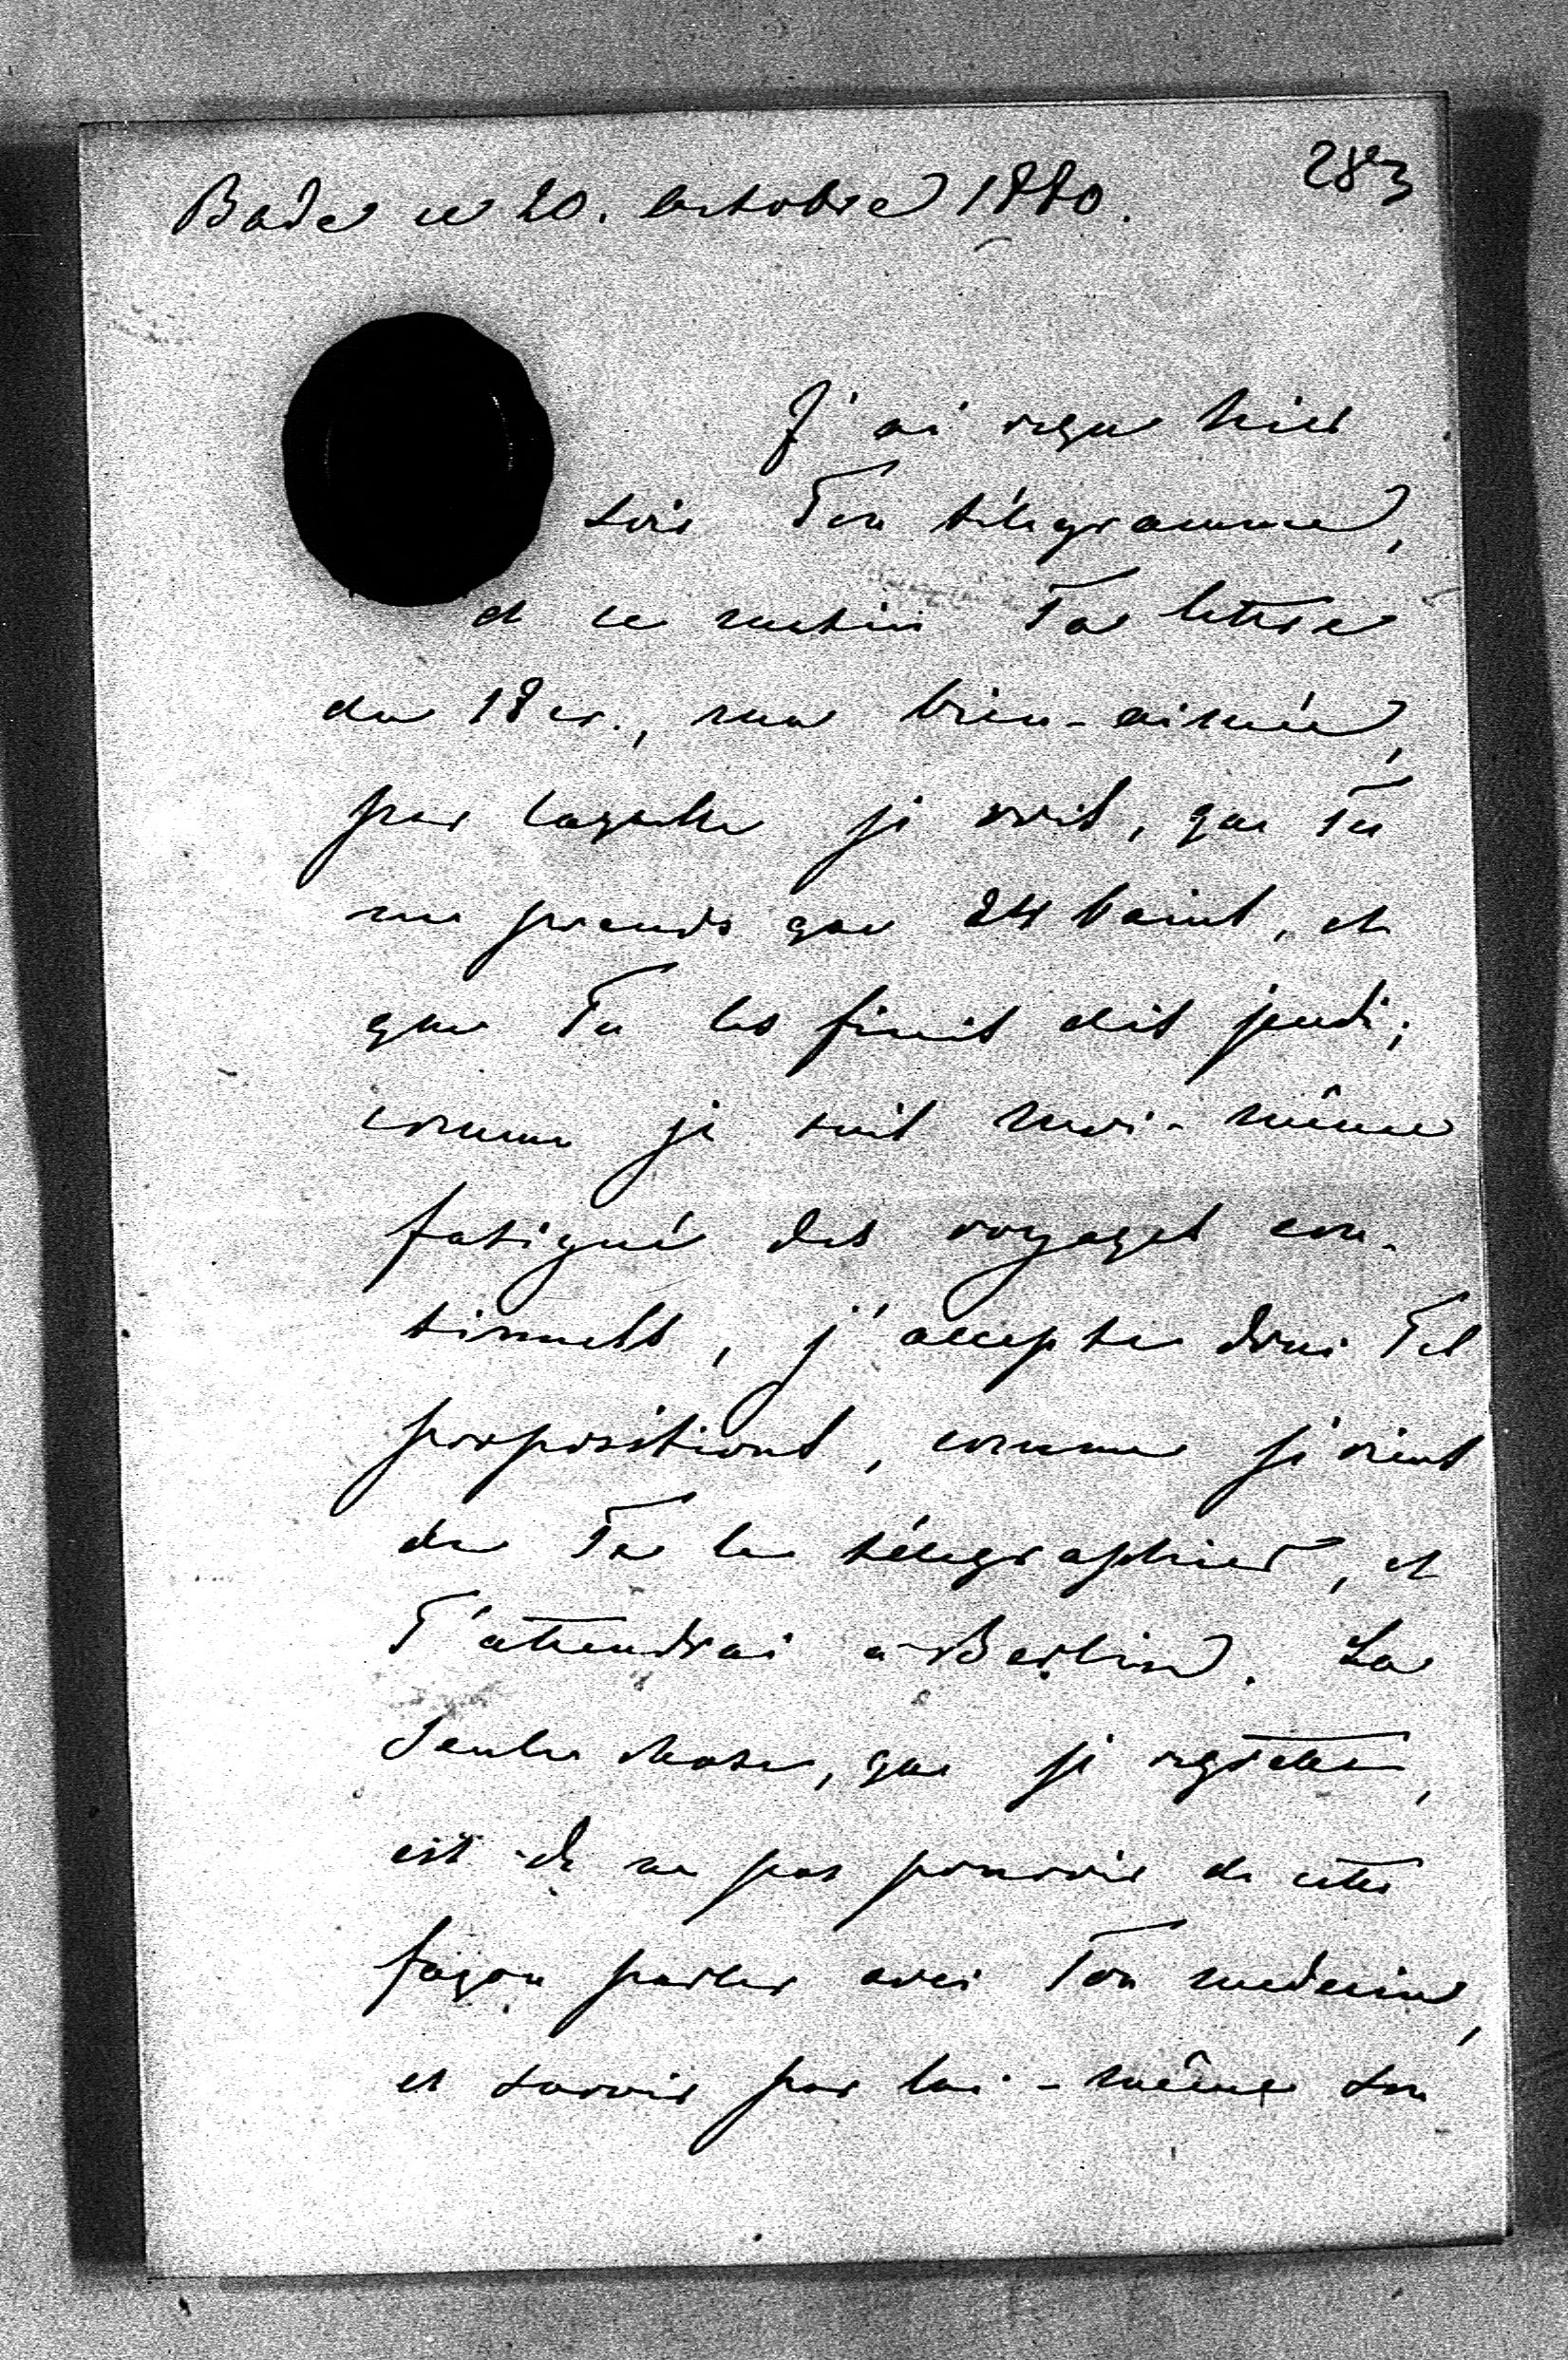 283
Bade ce 20. octobre 1880.
J'ai reçu hier
soir Ton télegramme,
et ce matin Ta lettre
du 18 cr., ma bien-aimée,
par laquelle je vois, que Tu
ne prends que 24 bains, et
que Tu les finis dès jeudi;
comme je suis moi-même
fatigué des voyages con-
tinuels, j'accepte donc Tes
propositions, comme je viens
de Te le télegraphier, et
T'attendrai à Berlin. La
seule chose, que je regrette,
est de ne pas pouvoir de cette
façon parler avec Ton medecin,
et savoir par lui-même son